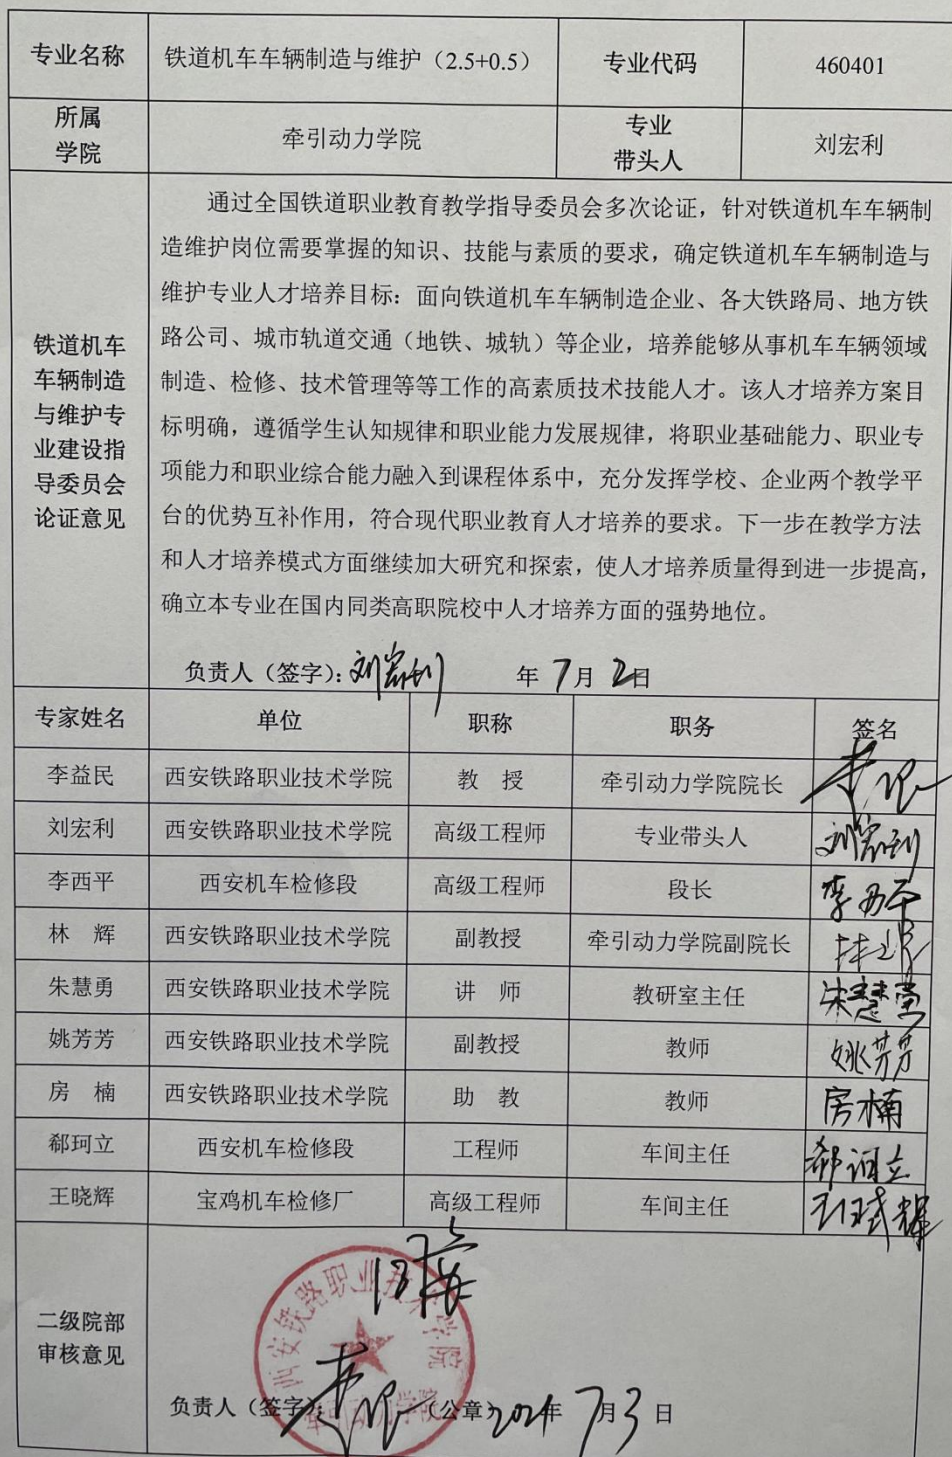 专业名称 铁道机车车辆制造与维护（2.5+0.5） 专业代码 460401
所属
学院 牵引动力学院 专业
带头人 刘宏利
铁道机车
车辆制造
与维护专
业建设指
导委员会
论证意见
通过全国铁道职业教育教学指导委员会多次论证，针对铁道机车车辆制
造维护岗位需要掌握的知识、技能与素质的要求，确定铁道机车车辆制造与
维护专业人才培养目标：面向铁道机车车辆制造企业、各大铁路局、地方铁
路公司、城市轨道交通（地铁、城轨）等企业，培养能够从事机车车辆领域
制造、检修、技术管理等等工作的高素质技术技能人才。该人才培养方案目
标明确，遵循学生认知规律和职业能力发展规律，将职业基础能力、职业专
项能力和职业综合能力融入到课程体系中，充分发挥学校、企业两个教学平
台的优势互补作用，符合现代职业教育人才培养的要求。下一步在教学方法
和人才培养模式方面继续加大研究和探索，使人才培养质量得到进一步提高，
确立本专业在国内同类高职院校中人才培养方面的强势地位。
负责人（签字）：刘宏利 年 7月 2日
专家姓名 单位 职称 职务 签名
李益民 西安铁路职业技术学院 教 授 牵引动力学院院长
刘宏利 西安铁路职业技术学院 高级工程师 专业带头人 刘宏利
李西平 西安机车检修段 高级工程师 段长 李西平
林 辉 西安铁路职业技术学院 副教授 牵引动力学院副院长 林辉
朱慧勇 西安铁路职业技术学院 讲 师 教研室主任 朱慧勇
姚芳芳 西安铁路职业技术学院 副教授 教师 姚芳芳
房 楠 西安铁路职业技术学院 助 教 教师 房楠
郗珂立 西安机车检修段 工程师 车间主任 郗珂立
王晓辉 宝鸡机车检修厂 高级工程师 车间主任
二级院部
审核意见
同意
西安铁路职业技术学院
牵引动力学院
负责人（签字）： （公章） 2024年 7月3 日